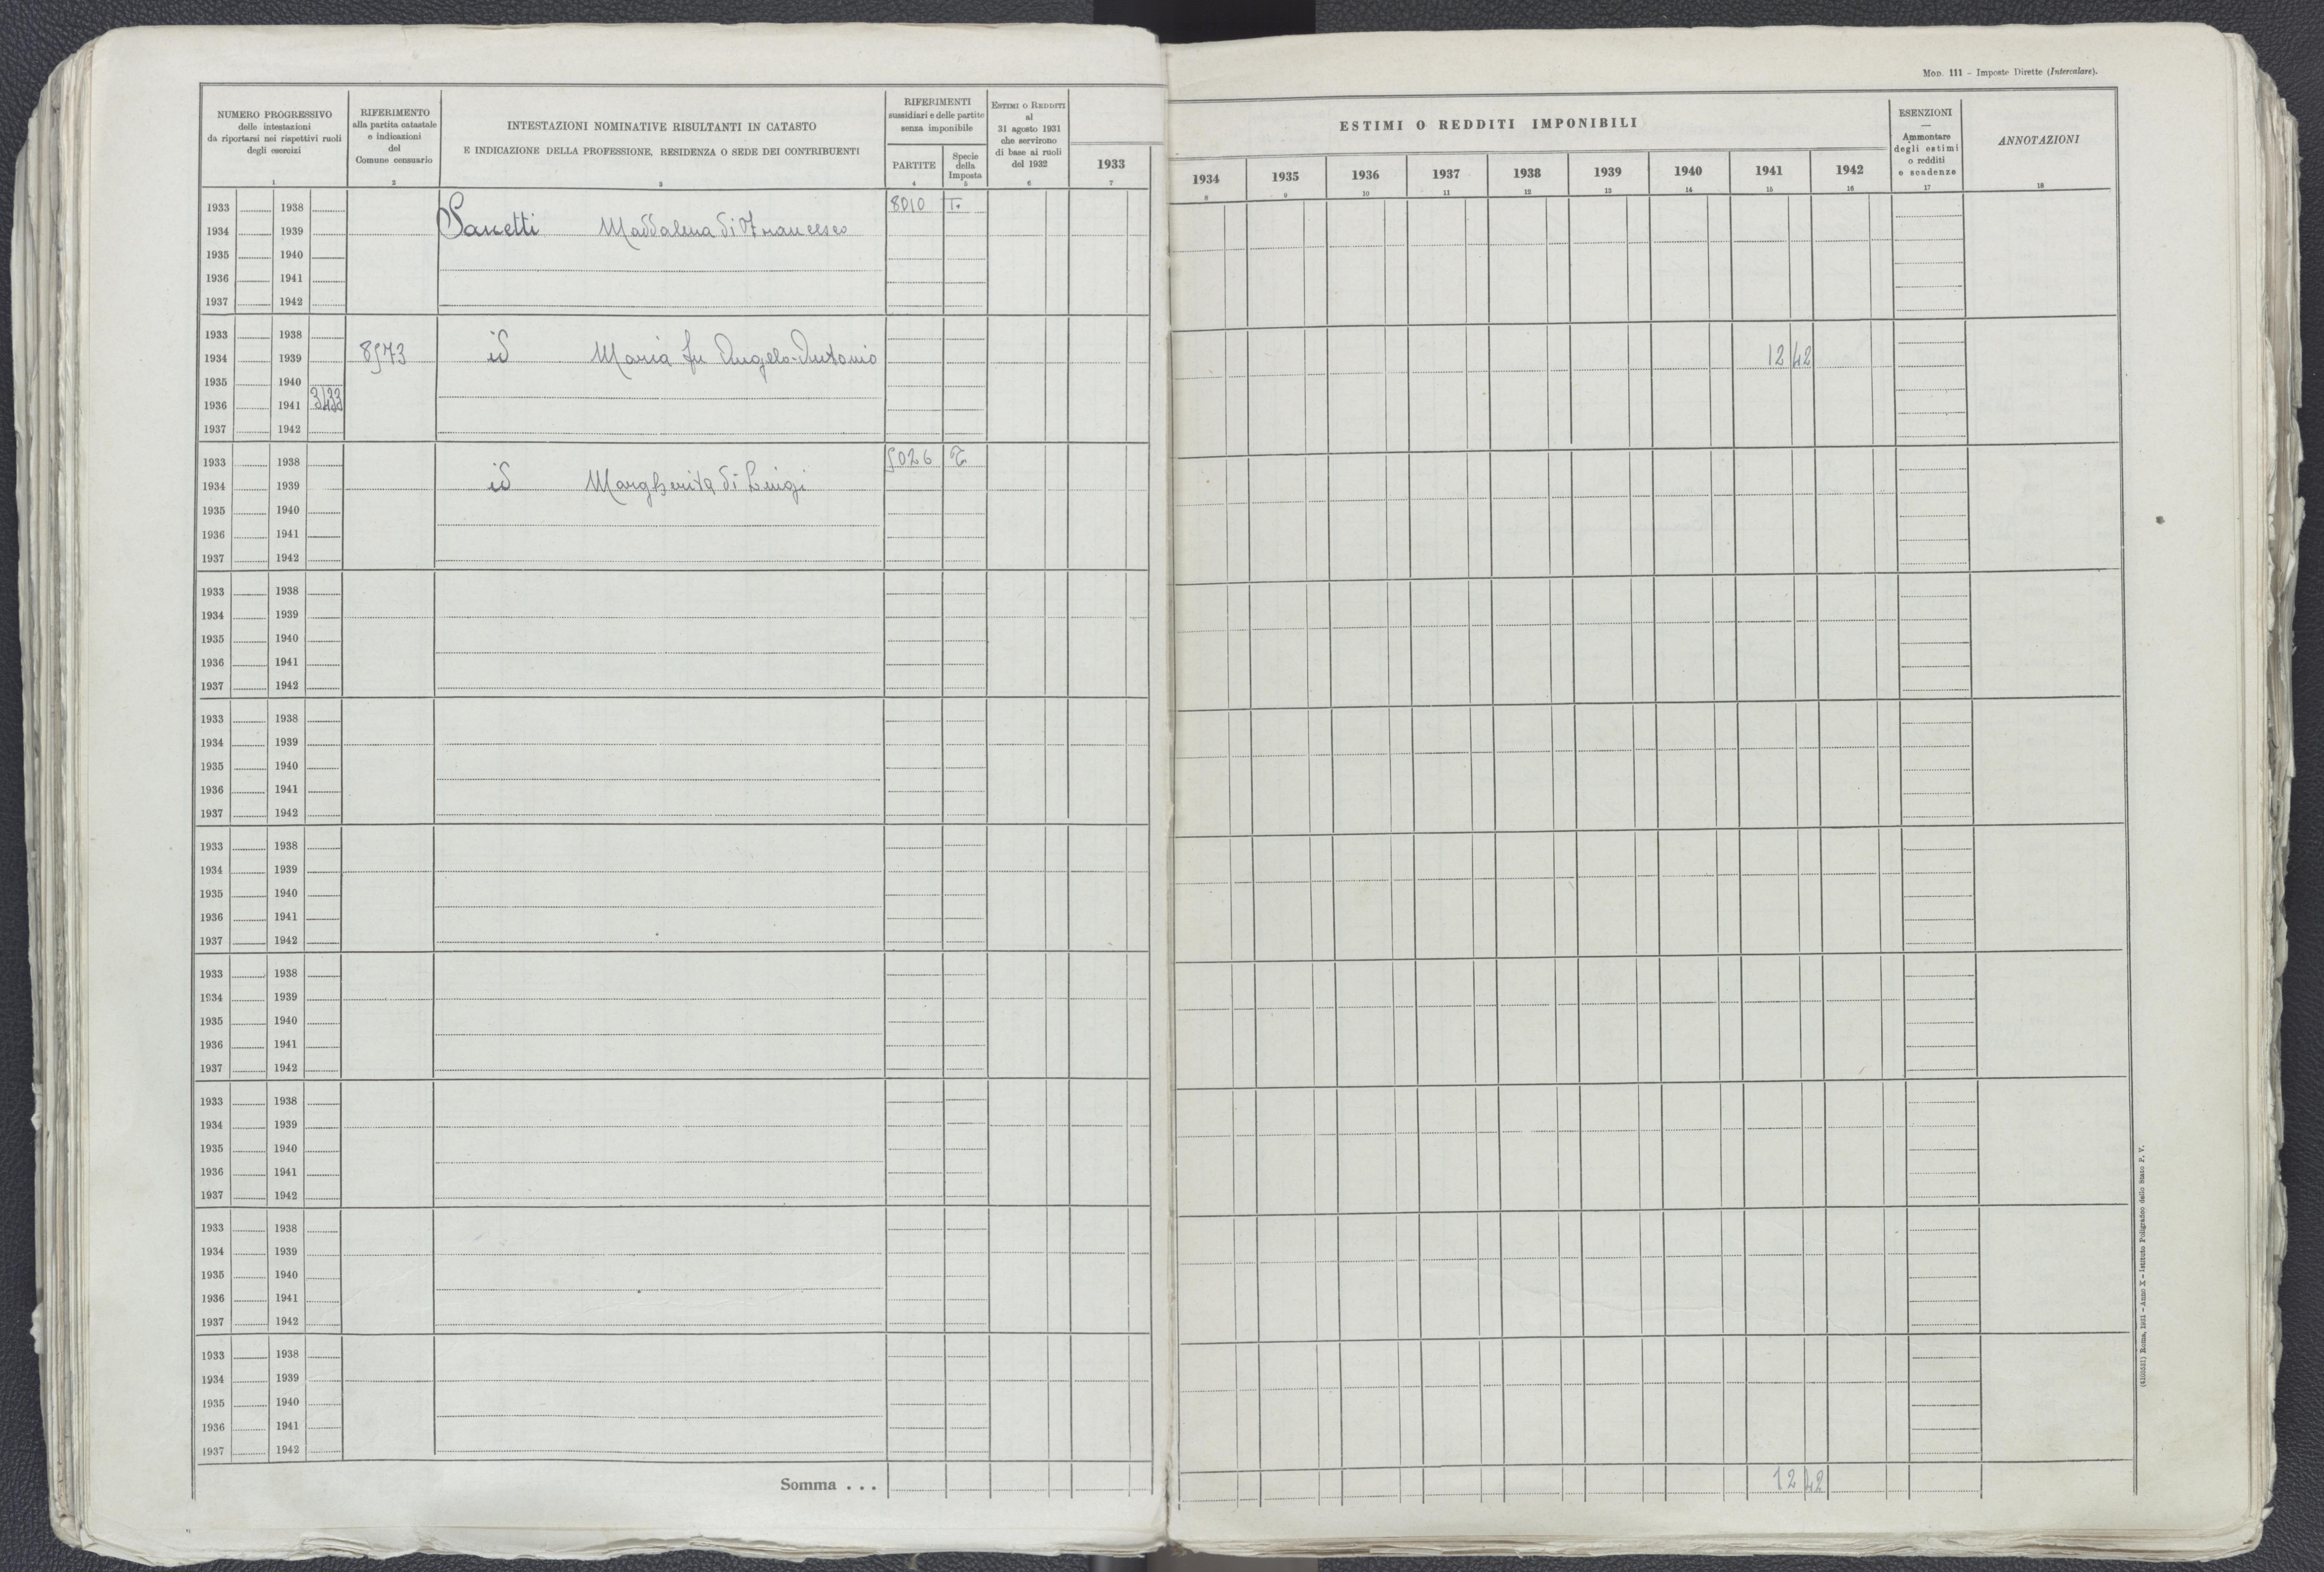 Mod. 111 - Imposte Dirette (Intercalare).
NUMERO PROGRESSIVO
delle intestazioni
da riportarsi nei rispettivi ruoli
degli esercizi
1
RIFERIMENTO
alla partita catastale
e indicazioni
del
Comune censuario
2
INTESTAZIONI NOMINATIVE RISULTANTI IN CATASTO
E INDICAZIONE DELLA PROFESSIONE, RESIDENZA O SEDE DEI CONTRIBUENTI
3
RIFERIMENTI
sussidiari e delle partite
senza imponibile
PARTITE
4
Specie
della
Imposta
5
Estimi o Redditi
al
31 agosto 1931
che servirono
di base ai ruoli
del 1932
6
1933
7
ESTIMI O REDDITI IMPONIBILI
1934 1935 1936 1937 1938 1939 1940 1941 1942
8 9 10 11 12 13 14 15 16
ESENZIONI
—
Ammontare
degli estimi
o redditi
e scadenze
17
ANNOTAZIONI
18
1933 1938 8010 T.
1934 1939 Maddalena di Francesco
1935 1940
1936 1941
1937 1942
1933 1938
1934 1939 8573 id Maria fu Angelo-Antonio 12 42
1935 1940
1936 1941 3433
1937 1942
1933 1938 5026 T
1934 1939 id Margherita di Luigi
1935 1940
1936 1941
1937 1942
1933 1938
1934 1939
1935 1940
1936 1941
1937 1942
1933 1938
1934 1939
1935 1940
1936 1941
1937 1942
1933 1938
1934 1939
1935 1940
1936 1941
1937 1942
1933 1938
1934 1939
1935 1940
1936 1941
1937 1942
1933 1938
1934 1939
1935 1940
1936 1941
1937 1942
1933 1938
1934 1939
1935 1940
1936 1941
1937 1942
1933 1938
1934 1939
1935 1940
1936 1941
1937 1942
Somma . . . 12 42
Roma, 1931 - Anno X - Istituto Poligrafico dello Stato P. V.